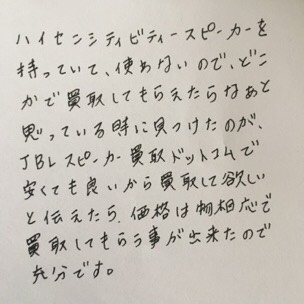 ハイセンシティビティースピーカーを
持っていて、使わないので、どこ
かで買取してもらえたらなぁと
思っている時に見つけたのが、
JBLスピーカー買取ドットコムで
安くても良いから買取して欲しい
と伝えたら、価格は物相応で
買取してもらう事が出来たので
充分です。